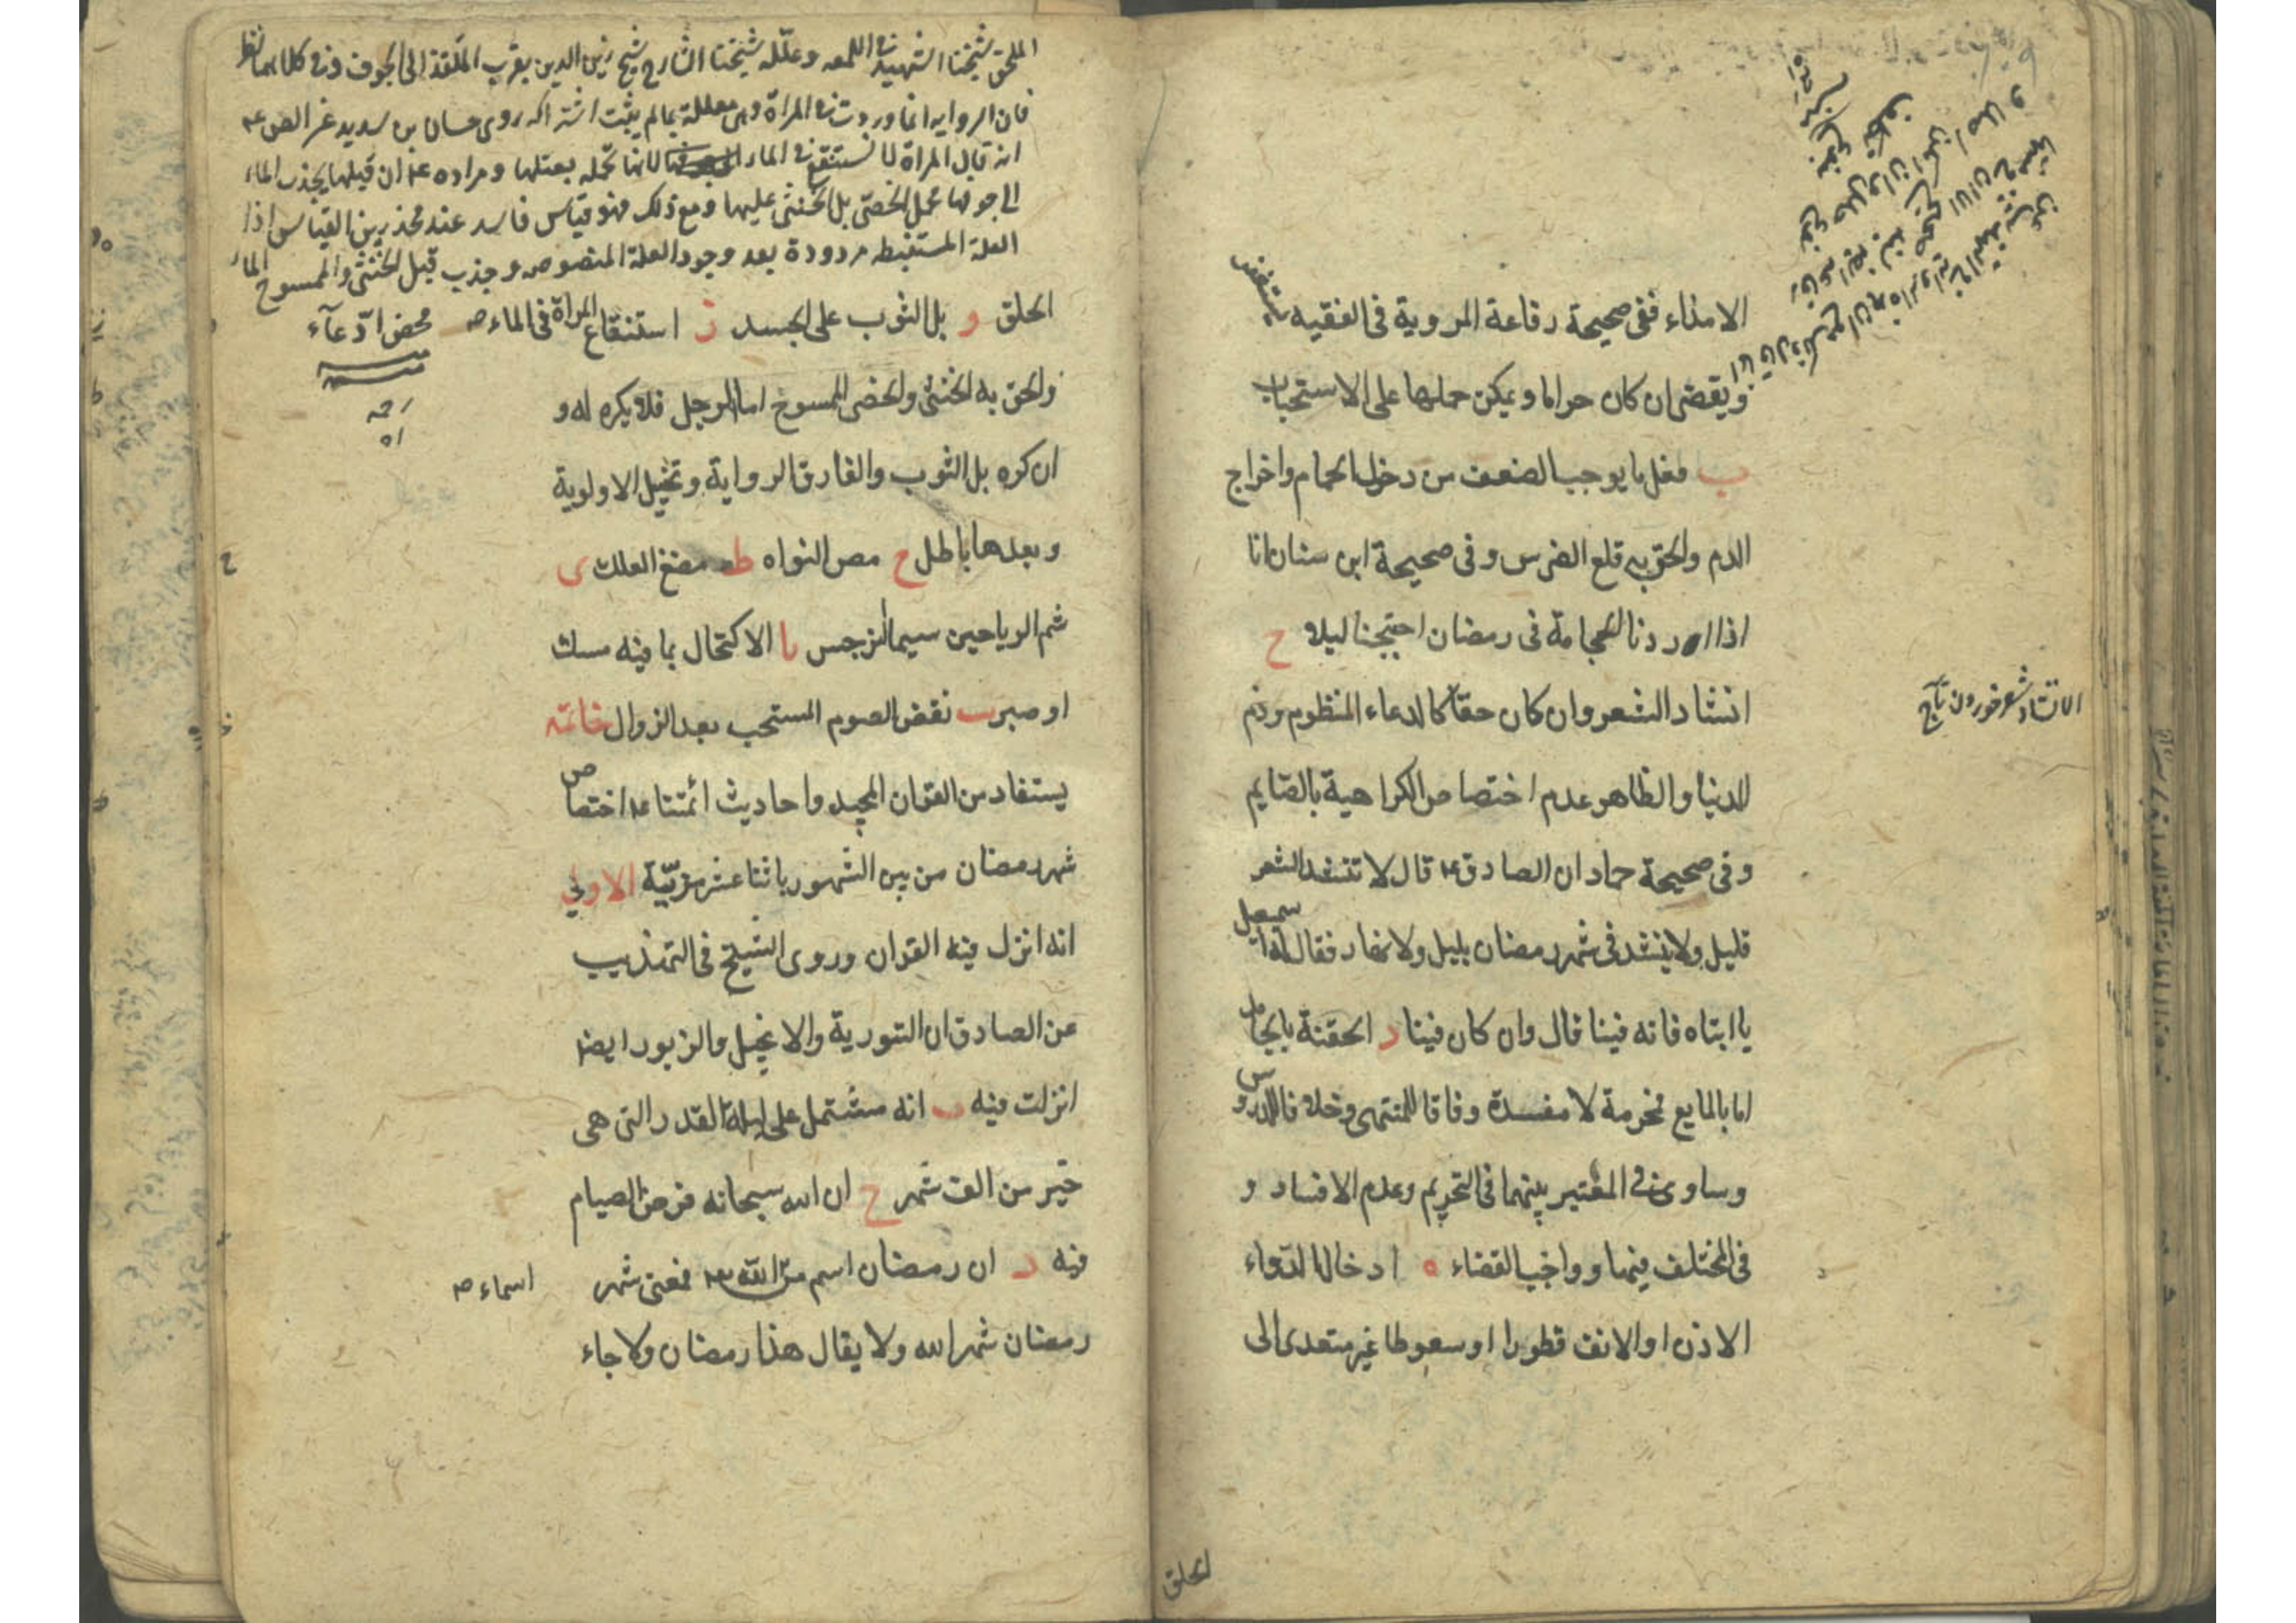 الامذاء ففى صحيحة رفاعة المروية فى الفقيه يستغفر
ويقضى ان كان حراما ويمكن حملها على الاستحباب
ب فعل ما يوجب الضعف من دخول الحمام واخراج
الدم والحق به قلع الضرس وفى صحيحة ابن سنان انا
اذا اردنا الحجامة فى رمضان احتجمنا ليلا ح
انشاد الشعر وان كان حقا كالدعاء المنظوم وذم
الدنيا والظاهر عدم اختصاص الكراهية بالصايم
وفى صحيحة حماد ان الصادق ع قال لا تنشد الشعر
بليل ولا ينشد فى شهر رمضان بليل ولا نهار فقال له اسمعيل
يا ابتاه فانه فينا قال وان كان فينا د الحقنة بالجامد
اما بالمايع فمحرمة لا مفسدة وفاقا للمنتهى وخلافا للدروس
وساوى فى المعتبر بينهما فى التحريم وعدم الافساد و
فى المختلف فيهما وواجب القضاء ه ادخال الدواء
الاذن او الانف قطورا او سعوطا غير متعدى الى
الحلق
الانشاد شعر خوردن
الملحق شيخنا الشهيد فى اللمعه وعلله شيخنا الشارح شيخ زين الدين بقرب المنفذ الى الجوف وفى كلامهما نظر
فان الروايه انما وردت فى المراة وهى معللة بما لم يثبت اشتراكه روى حسان بن سدير عن الص ع
انه قال المراة لا تستنقع فى الماء لانها تحمله بقبلها ومراده ع ان قبلها يجذب الماء
الى جوفها فحمل الخصى بل الخنثى عليها ومع ذلك فهو قياس فاسد عند مجوزين القياس اذا
العلة المستنبطه مردودة بعد وجود العلة المنصوص وجذب قبل الخنثى والممسوح الماء
محض ادعآء
الحلق و بل الثوب على الجسد ز استنقاع المراة فى الماء
والحق به الخنثى والخصى الممسوح اما الرجل فلا يكره له و
ان كره بل الثوب والفارق الرواية وتخيل الاولوية
وبعدها باطل ح مص النواه ط مضغ العلك ى
شم الرياحين سيما النرجس يا الاكتحال بما فيه مسك
او صبر يب نقض الصوم المستحب بعد الزوال خاتمة
يستفاد من القران المجيد واحاديث ائمتنا ع اختصاص
شهر رمضان من بين الشهور باثنا عشر مزيّة الاولى
انه انزل فيه القران وروى الشيخ فى التهذيب
عن الصادق ان التورية والانجيل والزبور ايضا
انزلت فيه ب انه مشتمل على ليلة القدر التى هى
خير من الف شهر ح ان الله سبحانه فرض الصيام
فيه د ان رمضان اسم من الله فمعنى شهر
اسماء
رمضان شهر الله ولا يقال هذا رمضان ولا جاء